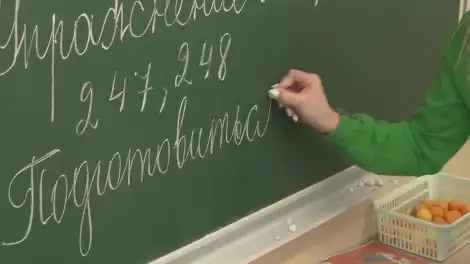 Упражнение
247, 248
Подготовиться